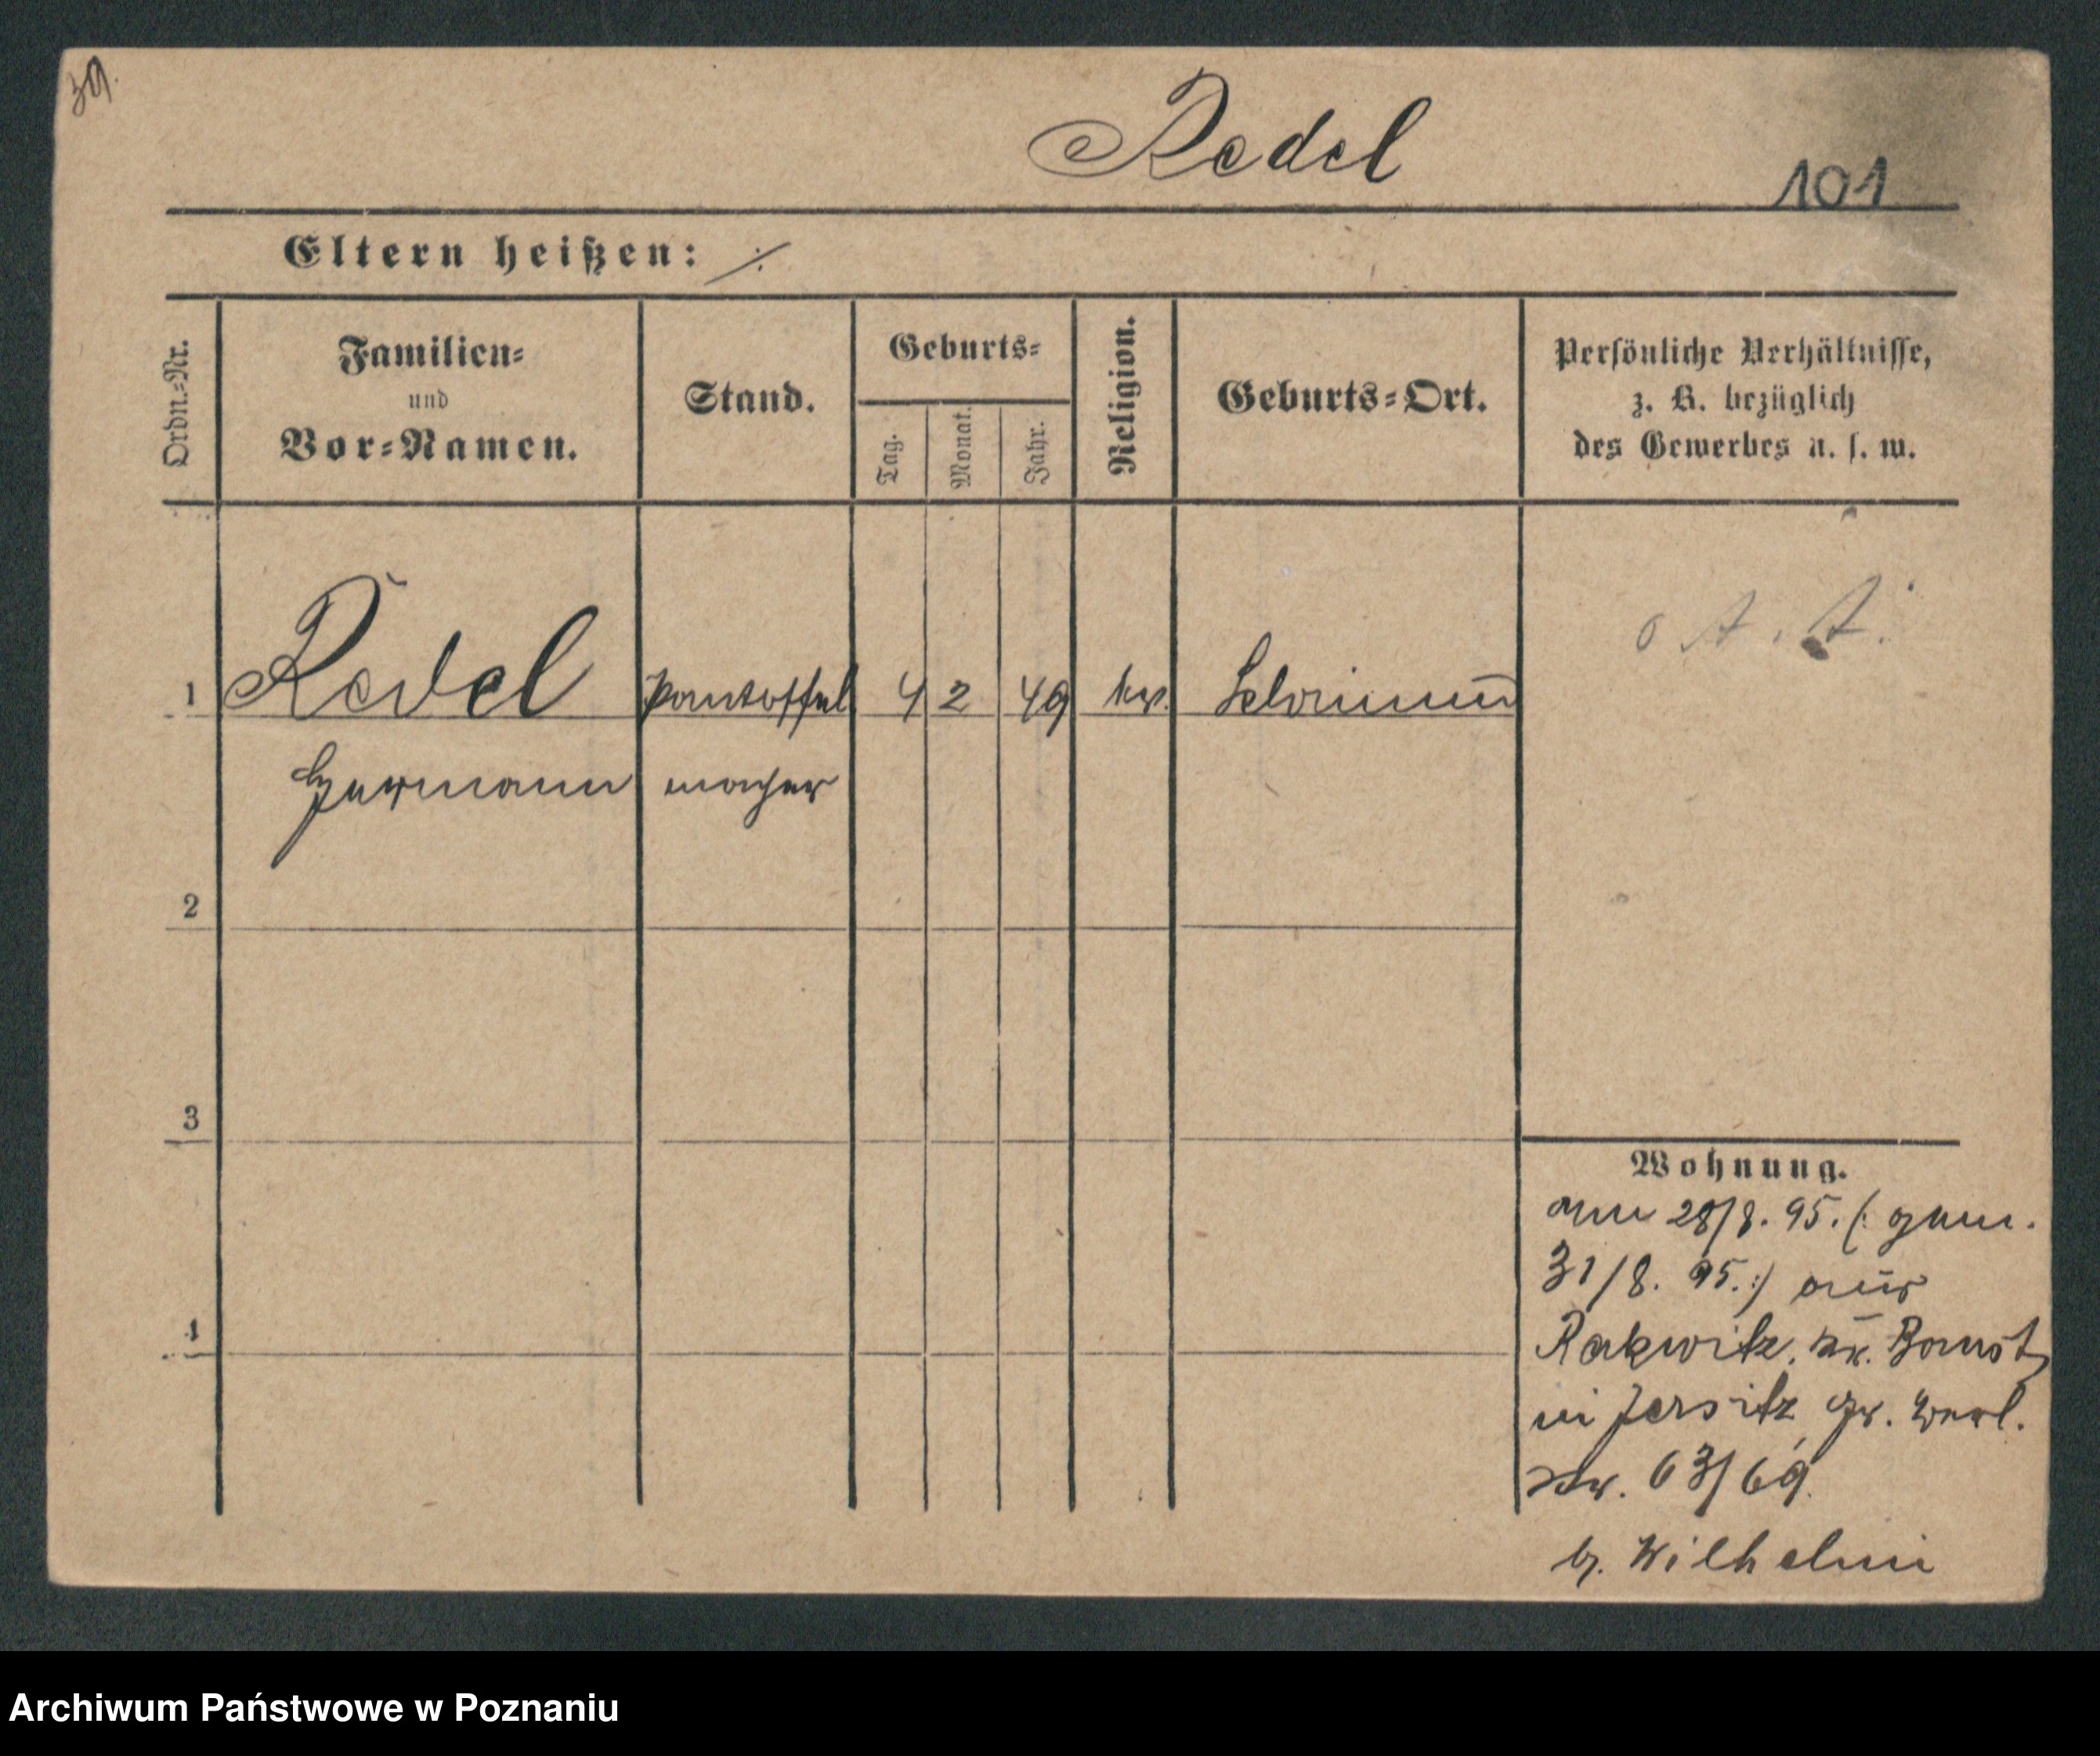 Redel
101
Eltern heißen: ⁒
Ordn.-Nr.
Familien-
und
Vor-Namen.
Stand.
Geburts-
Tag.
Monat.
Jahr.
Religion.
Geburts-Ort.
Persönliche Verhältnisse,
z. B. bezüglich
des Gewerbes u. s. w.
1 Redel Pantoffel 4 2 49
Hermann macher
2
3
4
Wohnung.
am 28/8. 95. (: gem.
31/8. 95. :) aus
Rakwitz, Kr. Bomst
in Jersitz, Gr. Berl.
Str. 63/69.
b. Wilhelmi
Archiwum Państwowe w Poznaniu